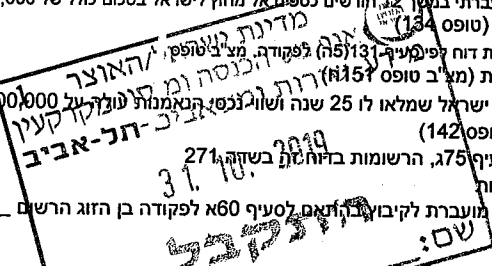 העברתי במשך 12 חודשים כספים אל מחוץ לישראל בסכום כולל של 000,
(טופס 134)
ת דוח לפי סעיף 131(5ה) לפקודה, מצ"ב טופס
ת (מצ"ב טופס 151)
ישראל שמלאו לו 25 שנה ושווי נכסי הנאמנות עולה על 00,000
ופס 142)
עיף 75ג, הרשומות בדוח זה בשדה 271
ות
מועברת לקיבוץ בהתאם לסעיף 60א לפקודה בן הזוג הרשום
מדינת ישראל/האוצר
אגף מס הכנסה ומיסוי מקרקעין
תל-אביב
31. 10. 2019
התקבל
שם: